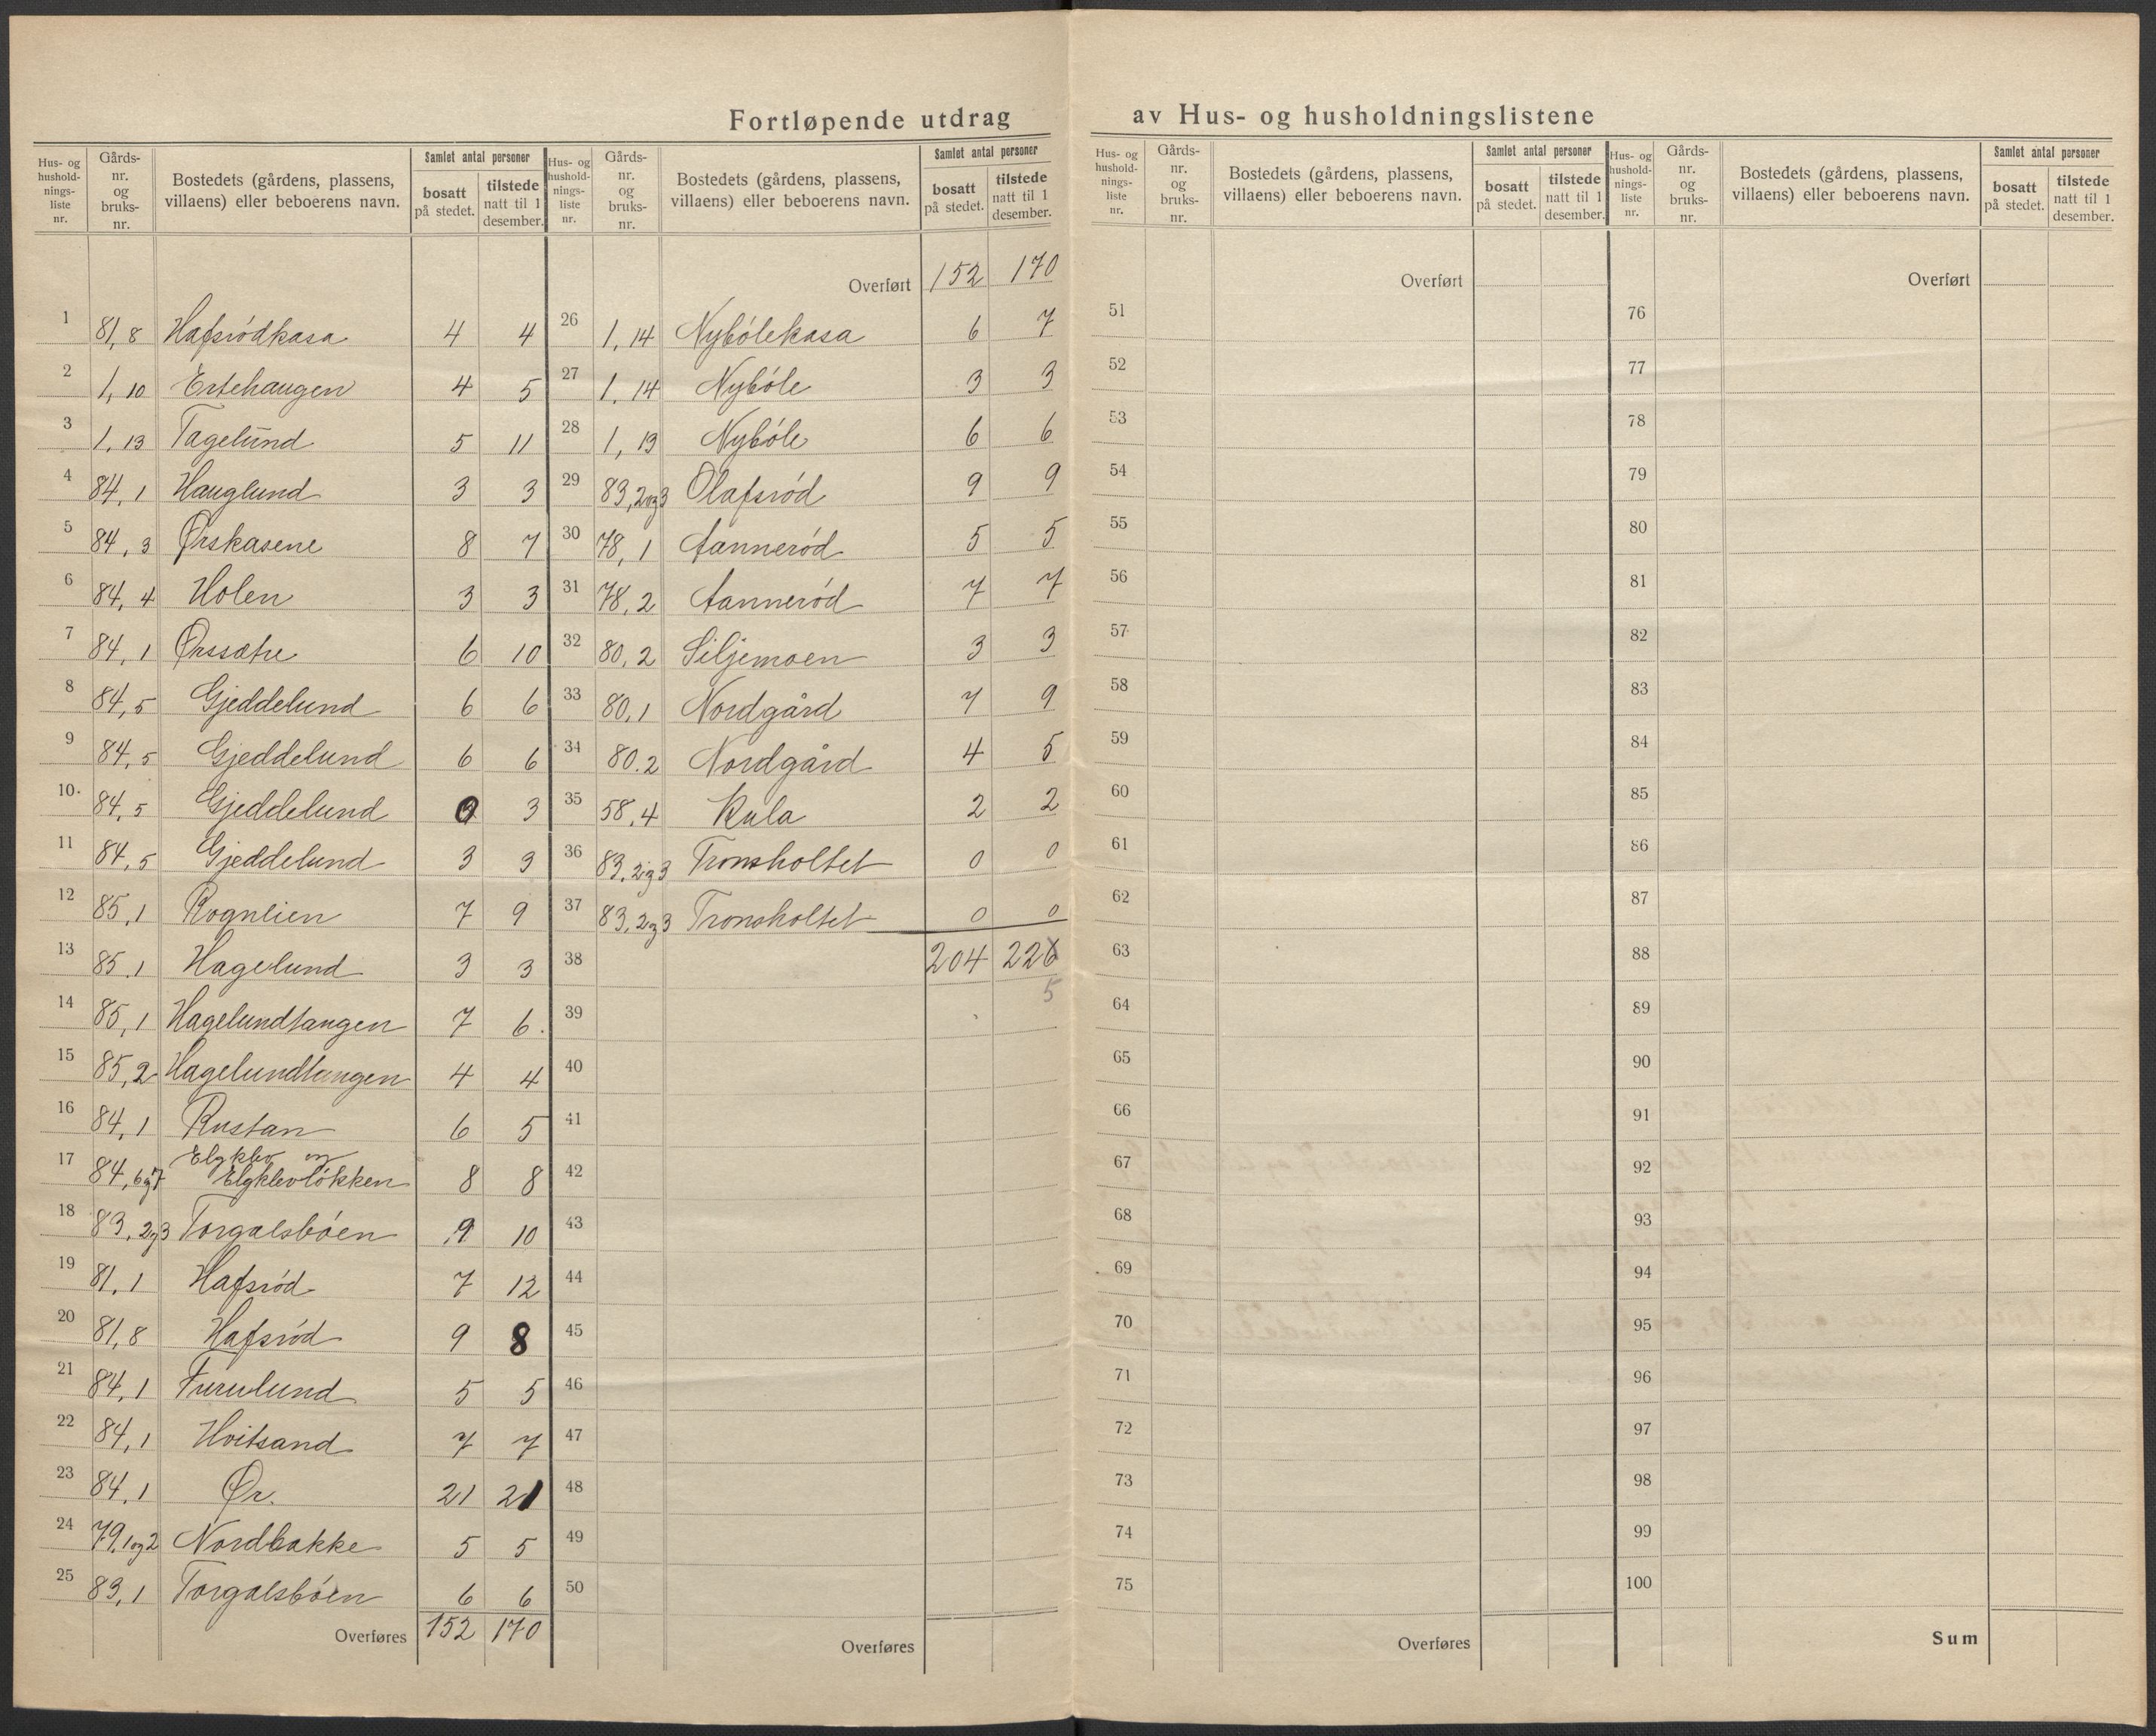 Fortløpende utdrag av Hus- og husholdningslistene
Hus- og hushold-nings-liste nr. | Gårds-nr. og bruks-nr. | Bostedets (gårdens, plassens, villaens) eller beboerens navn. | Samlet antal personer | bosatt på stedet. | tilstede natt til 1 desember.
1 81,8 Hafsrödkasa 4 4
2 1,10 Ertehaugen 4 5
3 1,13 Tagelund 5 11
4 84,1 Hauglund 3 3
5 84,3 Ørskasene 8 7
6 84,4 Holen 3 3
7 84,1 Ørssætre 6 10
8 84,5 Gjeddelund 6 6
9 84,5 Gjeddelund 6 6
10 84,5 Gjeddelund 0 3
11 84,5 Gjeddelund 3 3
12 85,1 Rognlien 7 9
13 85,1 Hagelund 3 3
14 85,1 Hagelundtangen 7 6
15 85,2 Hagelundtangen 4 4
16 84,1 Rustan 6 5
17 84,6og7 Elgklev og
Elgklevlökken 8 8
18 83,2og3 Torgalsböen 9 10
19 81,1 Hafsröd 7 12
20 81,8 Hafsröd 9 8
21 84,1 Furulund 5 5
22 84,1 Hvitsand 7 7
23 84,1 Ør. 21 21
24 79,1og2 Nordbakke 5 5
25 83,1 Torgalsböen 6 6
Overføres 152 170
Hus- og hushold-nings-liste nr. | Gårds-nr. og bruks-nr. | Bostedets (gårdens, plassens, villaens) eller beboerens navn. | Samlet antal personer | bosatt på stedet. | tilstede natt til 1 desember.
Overført 152 170
26 1,14 Nybölekasa 6 7
27 1,14 Nyböle 3 3
28 1,13 Nyböle 6 6
29 83,2og3 Olafsröd 9 9
30 78,1 Aanneröd 5 5
31 78,2 Aanneröd 7 7
32 80,2 Siljemoen 3 3
33 80,1 Nordgård 7 9
34 80.2 Nordgård 4 5
35 58,4 Kula 2 2
36 83,2og3 Tronsholtet 0 0
37 83,2og3 Tronsholtet 0 0
38 204 226
5
39
40
41
42
43
44
45
46
47
48
49
50
Overføres
Hus- og hushold-nings-liste nr. | Gårds-nr. og bruks-nr. | Bostedets (gårdens, plassens, villaens) eller beboerens navn. | Samlet antal personer | bosatt på stedet. | tilstede natt til 1 desember.
Overført
51
52
53
54
55
56
57
58
59
60
61
62
63
64
65
66
67
68
69
70
71
72
73
74
75
Overføres
Hus- og hushold-nings-liste nr. | Gårds-nr. og bruks-nr. | Bostedets (gårdens, plassens, villaens) eller beboerens navn. | Samlet antal personer | bosatt på stedet. | tilstede natt til 1 desember.
Overført
76
77
78
79
80
81
82
83
84
85
86
87
88
89
90
91
92
93
94
95
96
97
98
99
100
Sum